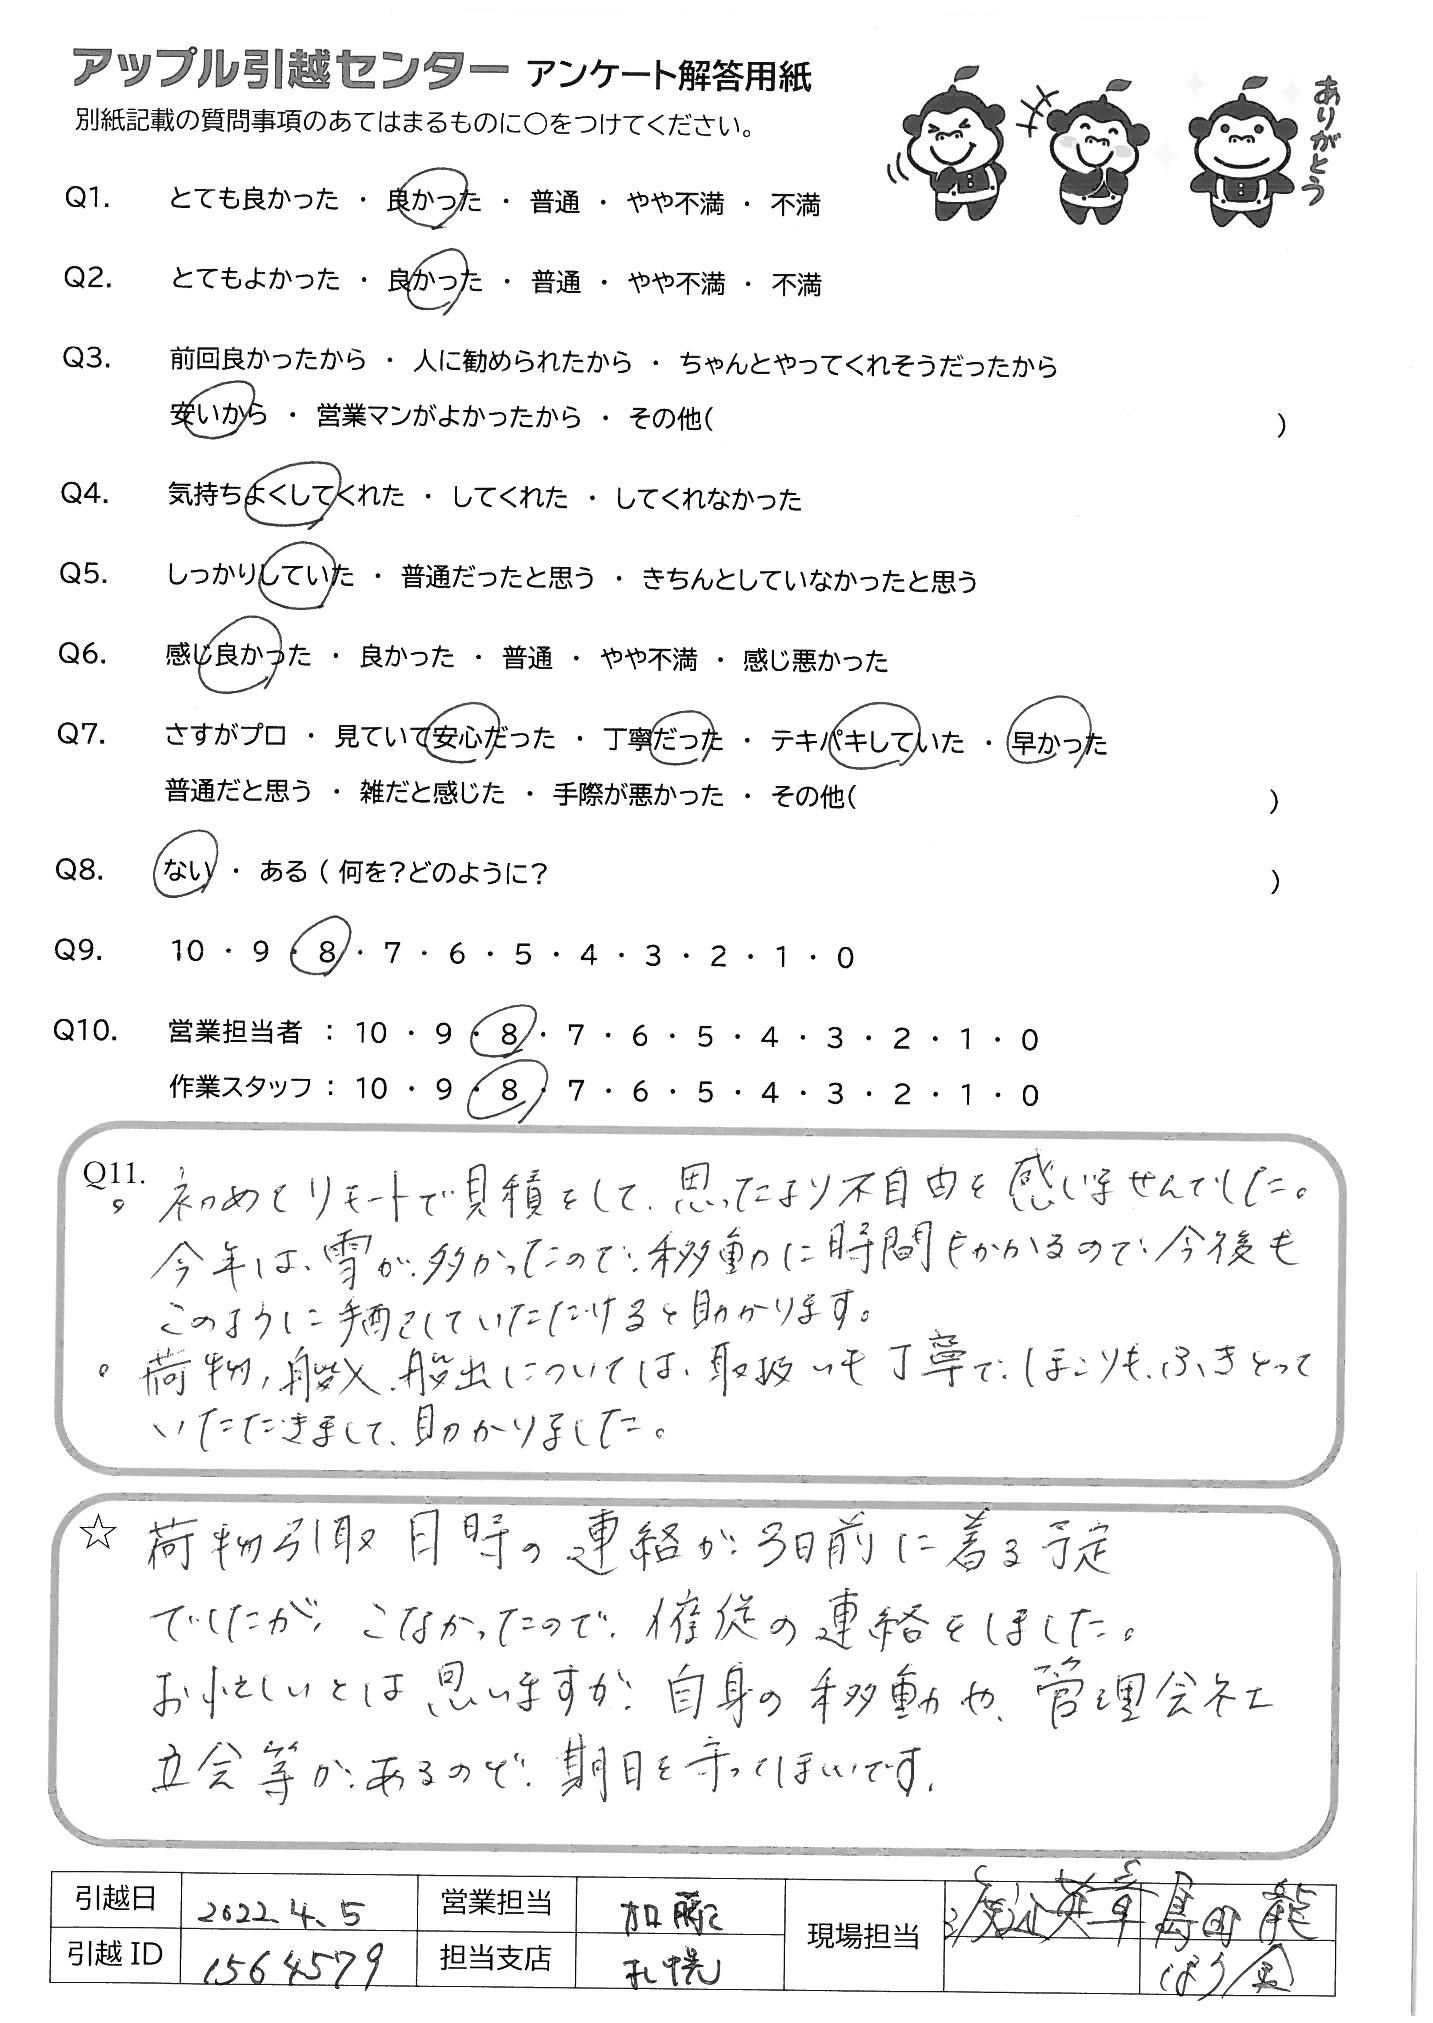 アップル引越センター アンケート解答用紙
別紙記載の質問事項のあてはまるものに○をつけてください。
ありがとう
Q1. とても良かった ・ 良かった ・ 普通 ・ やや不満 ・ 不満
Q2. とてもよかった ・ 良かった ・ 普通 ・ やや不満 ・ 不満
Q3. 前回良かったから ・ 人に勧められたから ・ ちゃんとやってくれそうだったから
安いから ・ 営業マンがよかったから ・ その他( )
Q4. 気持ちよくしてくれた ・ してくれた ・ してくれなかった
Q5. しっかりしていた ・ 普通だったと思う ・ きちんとしていなかったと思う
Q6. 感じ良かった ・ 良かった ・ 普通 ・ やや不満 ・ 感じ悪かった
Q7. さすがプロ ・ 見ていて安心だった ・ 丁寧だった ・ テキパキしていた ・ 早かった
普通だと思う ・ 雑だと感じた ・ 手際が悪かった ・ その他( )
Q8. ない ・ ある ( 何を?どのように? )
Q9. 10 ・ 9 ・ 8 ・ 7 ・ 6 ・ 5 ・ 4 ・ 3 ・ 2 ・ 1 ・ 0
Q10. 営業担当者 : 10 ・ 9 ・ 8 ・ 7 ・ 6 ・ 5 ・ 4 ・ 3 ・ 2 ・ 1 ・ 0
作業スタッフ : 10 ・ 9 ・ 8 ・ 7 ・ 6 ・ 5 ・ 4 ・ 3 ・ 2 ・ 1 ・ 0
Q11.
。初めてリモートで見積をして、思ったより不自由を感じませんでした。
今年は、雪が多かったので、移動に時間もかかるので、今後も
このように手配をしていただけると助かります。
。荷物、搬入、搬出については、取扱いも丁寧で、ほこりも、ふきとって
いただきまして、助かりました。
☆ 荷物引取日時の連絡が、3日前に着る予定
でしたが、こなかったので、催促の連絡をしました。
お忙しいとは思いますが、自身の移動や、管理会社
立会等が、あるので、期日を守ってほしいです。
引越日 2022.4.5 営業担当 加藤 現場担当 渡辺英章 島田龍
引越ID 1564579 担当支店 札幌